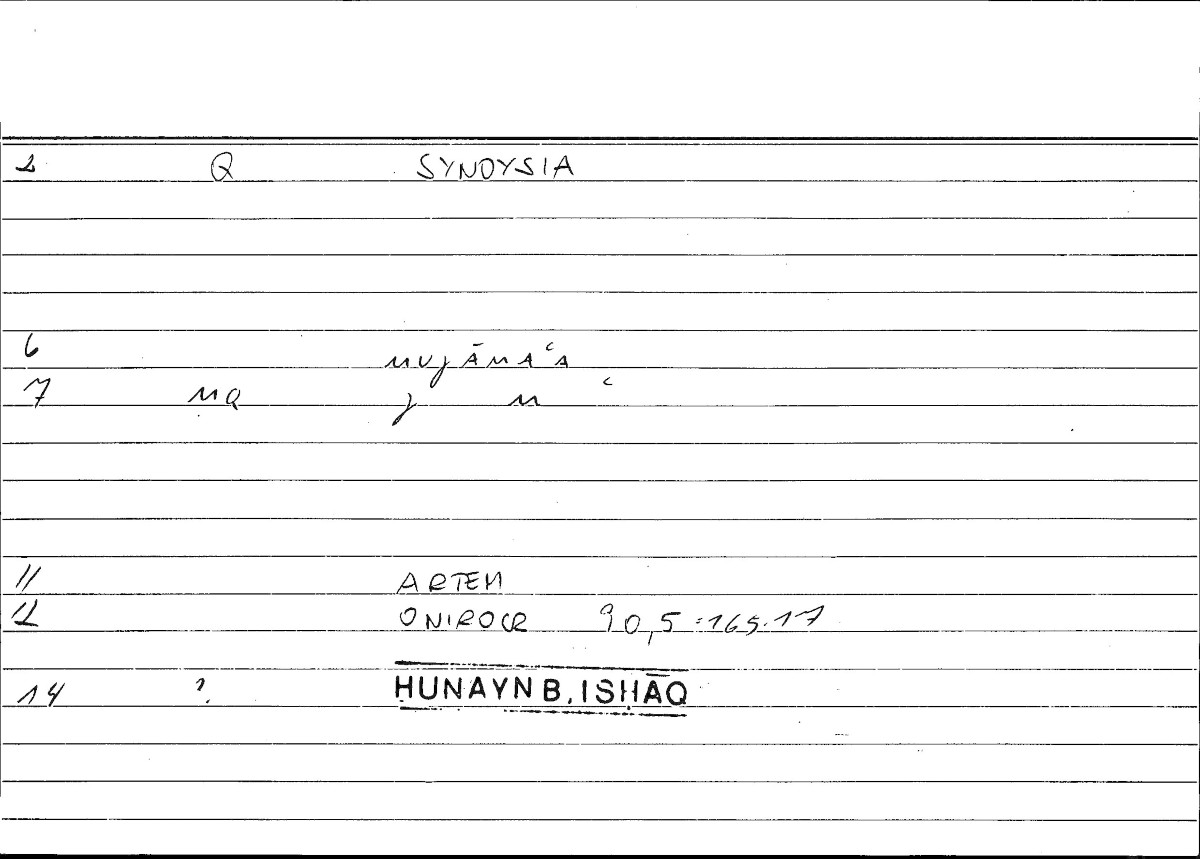 2 Q SYNOYSIA
6 MUJĀMAʿA
7 MQ J M ʿ
11 ARTEM
12 ONIROCR 90,5 :165.17
14 ? ḤUNAYN B. ISḤĀQ